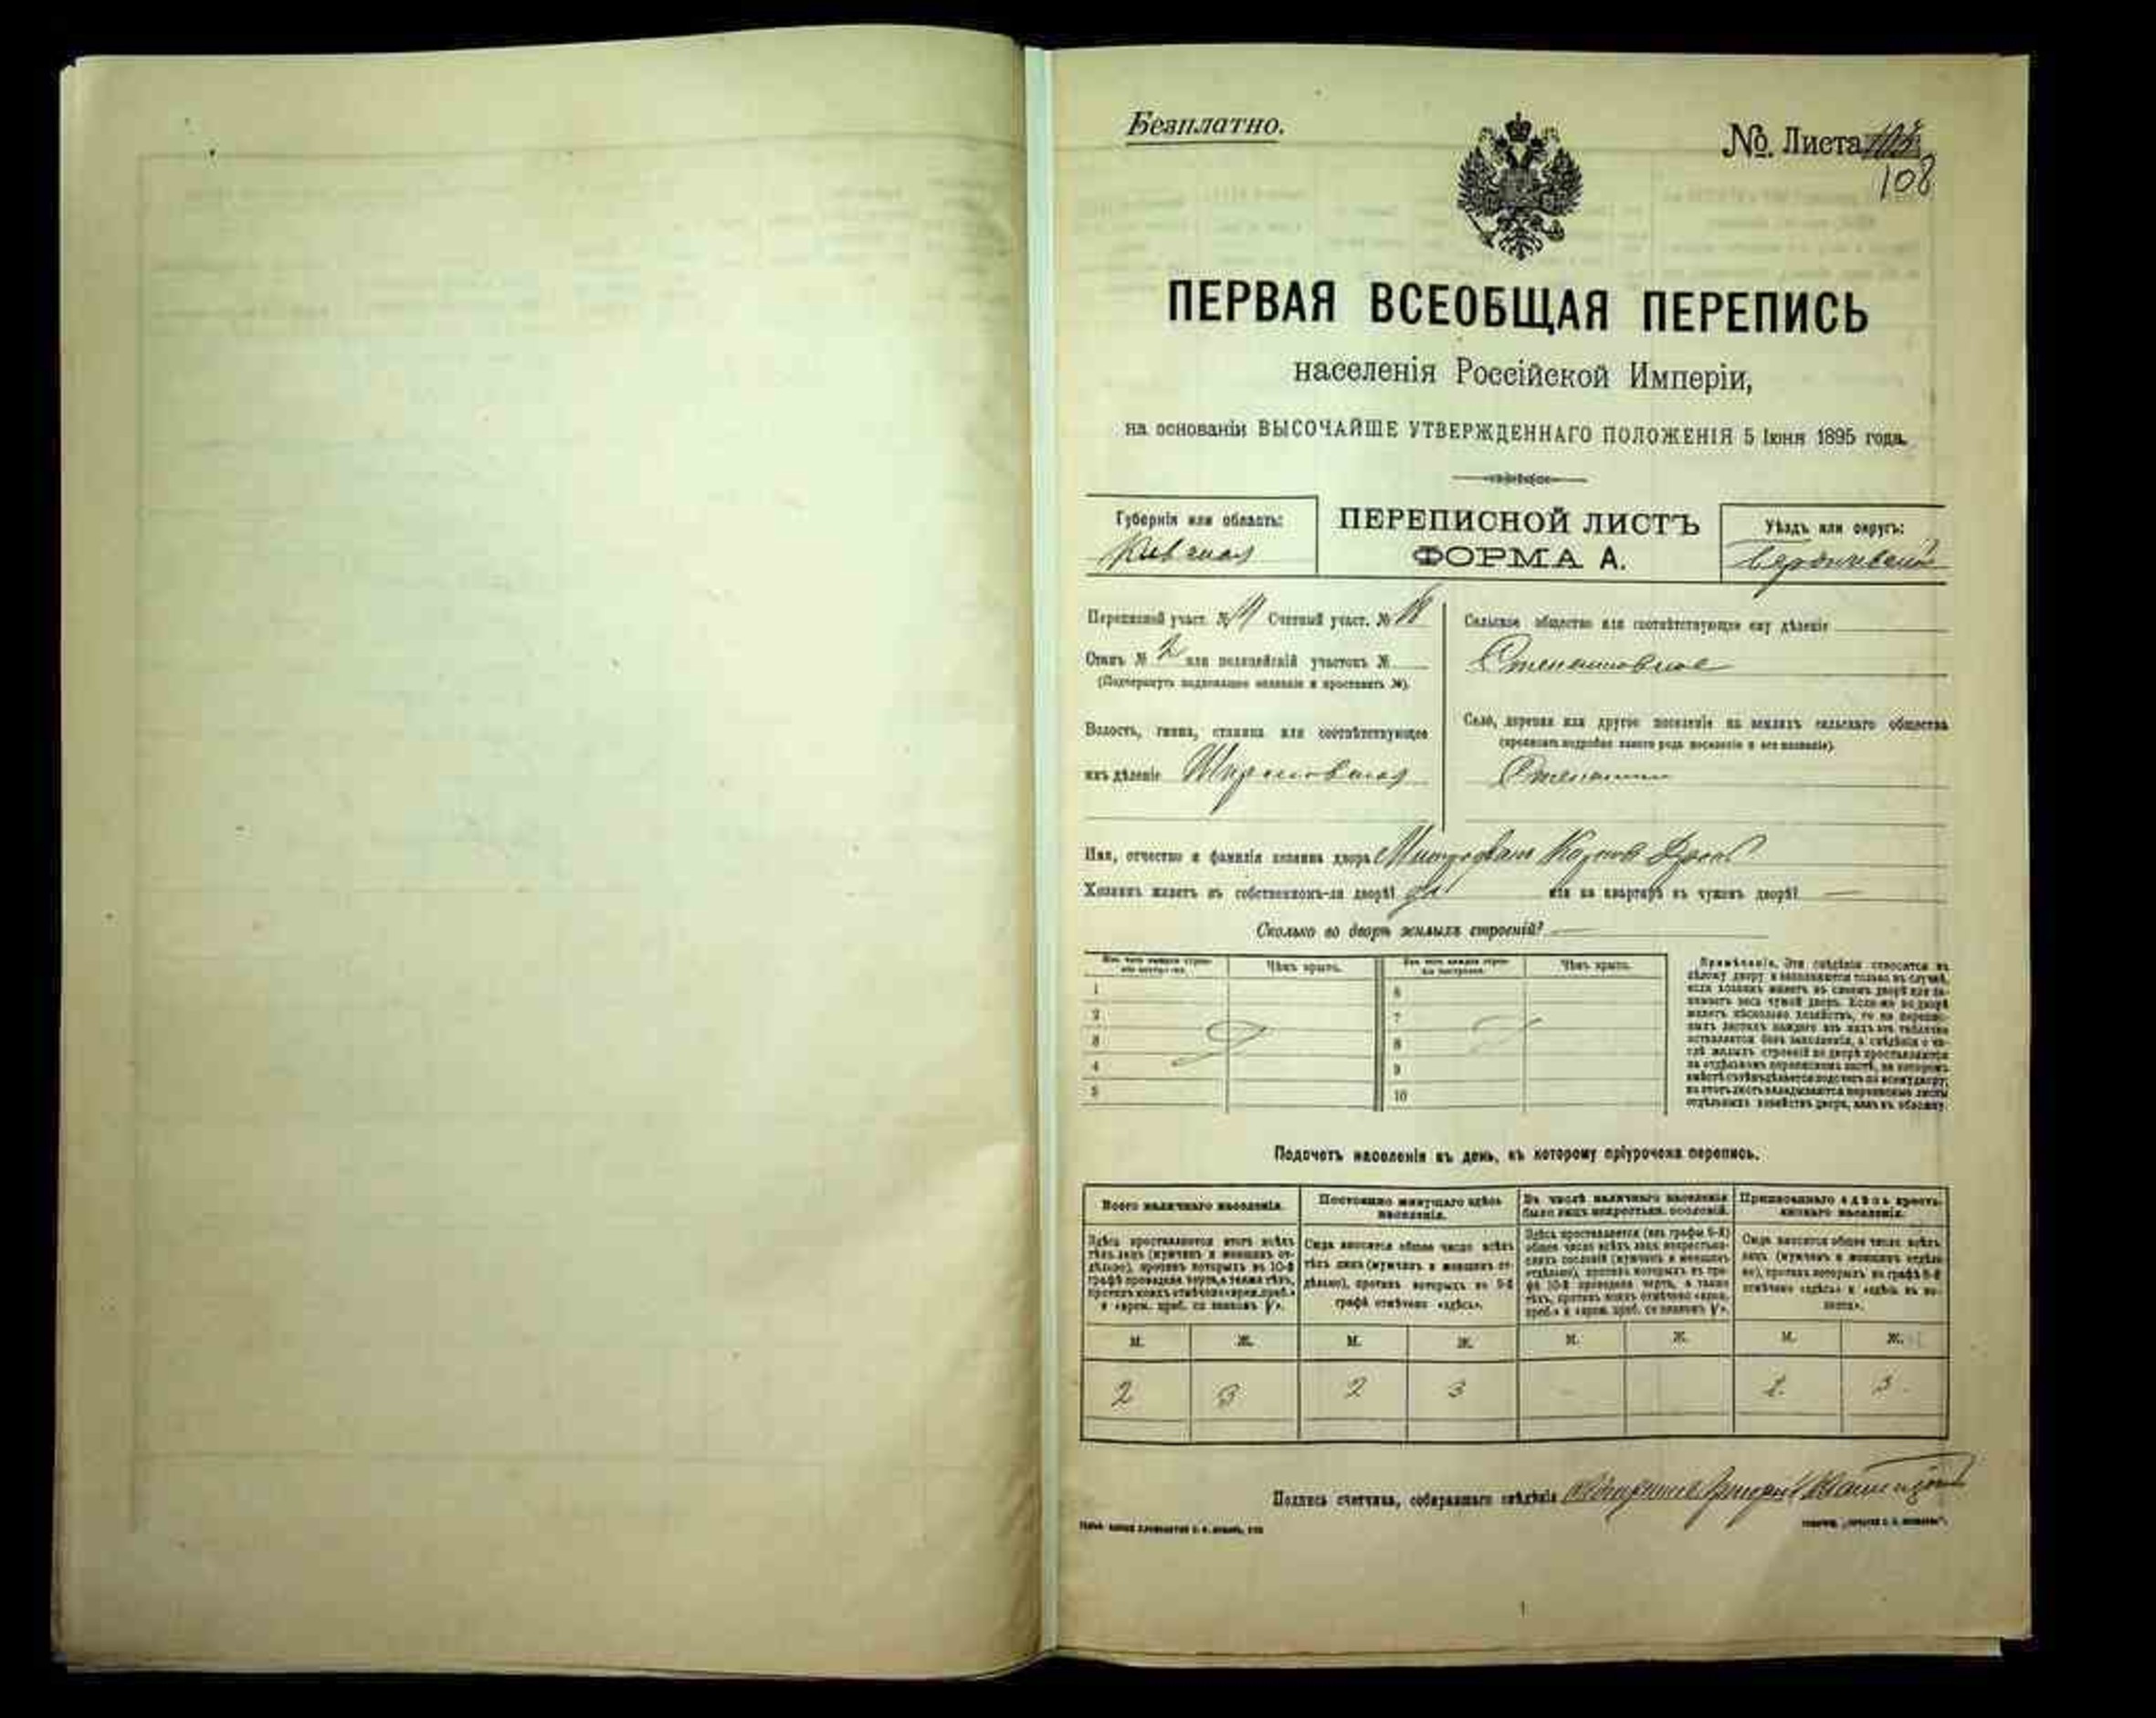 Безплатно.
№. Листа
108
ПЕРВАЯ ВСЕОБЩАЯ ПЕРЕПИСЬ
населенія Россійской Имперіи,
на основаніи ВЫСОЧАЙШЕ УТВЕРЖДЕННАГО ПОЛОЖЕНІЯ 5 Іюня 1895 года.
Губернія или область:
Кіевская
ПЕРЕПИСНОЙ ЛИСТЪ
ФОРМА А.
Уѣздъ или округъ:
Бердичевскій
Переписной участ. № Счетный участ. № 18
Станъ № 2 или полицейскій участокъ №
(Подчеркнуть надлежащее названіе и проставить №).
Волость, гмина, станица или соотвѣтствующее
имъ дѣленіе
Сельское общество или соотвѣтствующее ему дѣленіе
Степановское
Село, деревня или другое поселеніе на земляхъ сельскаго общества
(прописать подробно какого рода поселеніе и его названіе).
Имя, отчество и фамилія хозяина двора Митрофанъ
Хозяинъ живетъ въ собственномъ-ли дворѣ? да или на квартирѣ въ чужомъ дворѣ? —
Сколько во дворѣ жилыхъ строеній? —
Изъ чего каждое строеніе построено. Чѣмъ крыто. Изъ чего каждое строеніе построено. Чѣмъ крыто.
1 6
2 7
3 8
4 9
5 10
Примѣчаніе. Эти свѣдѣнія относятся къ
цѣлому двору и заполняются только въ случаѣ,
если хозяинъ живетъ въ своемъ дворѣ или занимаетъ
весь чужой дворъ. Если-же во дворѣ
живетъ нѣсколько хозяйствъ, то на переписныхъ
листахъ каждаго изъ нихъ эта табличка
оставляется безъ заполненія, а свѣдѣнія о числѣ
жилыхъ строеній во дворѣ проставляются
на отдѣльномъ переписномъ листѣ, на которомъ
вмѣстѣ съ тѣмъ дѣлается подсчетъ по всему двору;
въ этотъ листъ вкладываются переписные листы
отдѣльныхъ хозяйствъ двора, какъ въ обложку.
Подсчетъ населенія въ день, къ которому пріурочена перепись.
Всего наличнаго населенія.
Здѣсь проставляются итоги всѣхъ
тѣхъ лицъ (мужчинъ и женщинъ отдѣльно),
противъ которыхъ въ 10-й
графѣ проведена черта, а также тѣхъ,
противъ коихъ отмѣчено «врем. преб.»
и «врем. преб. со знакомъ V».
Постоянно живущаго здѣсь населенія.
Сюда вносится общее число всѣхъ
тѣхъ лицъ (мужчинъ и женщинъ отдѣльно),
противъ которыхъ въ 9-й
графѣ отмѣчено «здѣсь».
Въ числѣ наличнаго населенія
было лицъ некрестьян. сословій.
Здѣсь проставляется (изъ графы 5-й)
общее число всѣхъ лицъ некрестьянскихъ
сословій (мужчинъ и женщинъ
отдѣльно), противъ которыхъ въ графѣ
10-й проведена черта, а также
тѣхъ, противъ коихъ отмѣчено «врем.
преб.» и «врем. преб. со знакомъ V».
Приписаннаго здѣсь крестьянскаго населенія.
Сюда вносится общее число всѣхъ
лицъ (мужчинъ и женщинъ отдѣльно),
противъ которыхъ въ графѣ 8-й
отмѣчено «здѣсь» и «здѣсь въ волости».
М. Ж. М. Ж. М. Ж. М. Ж.
2 3 2 3 3
Подпись счетчика, собиравшаго свѣдѣнія